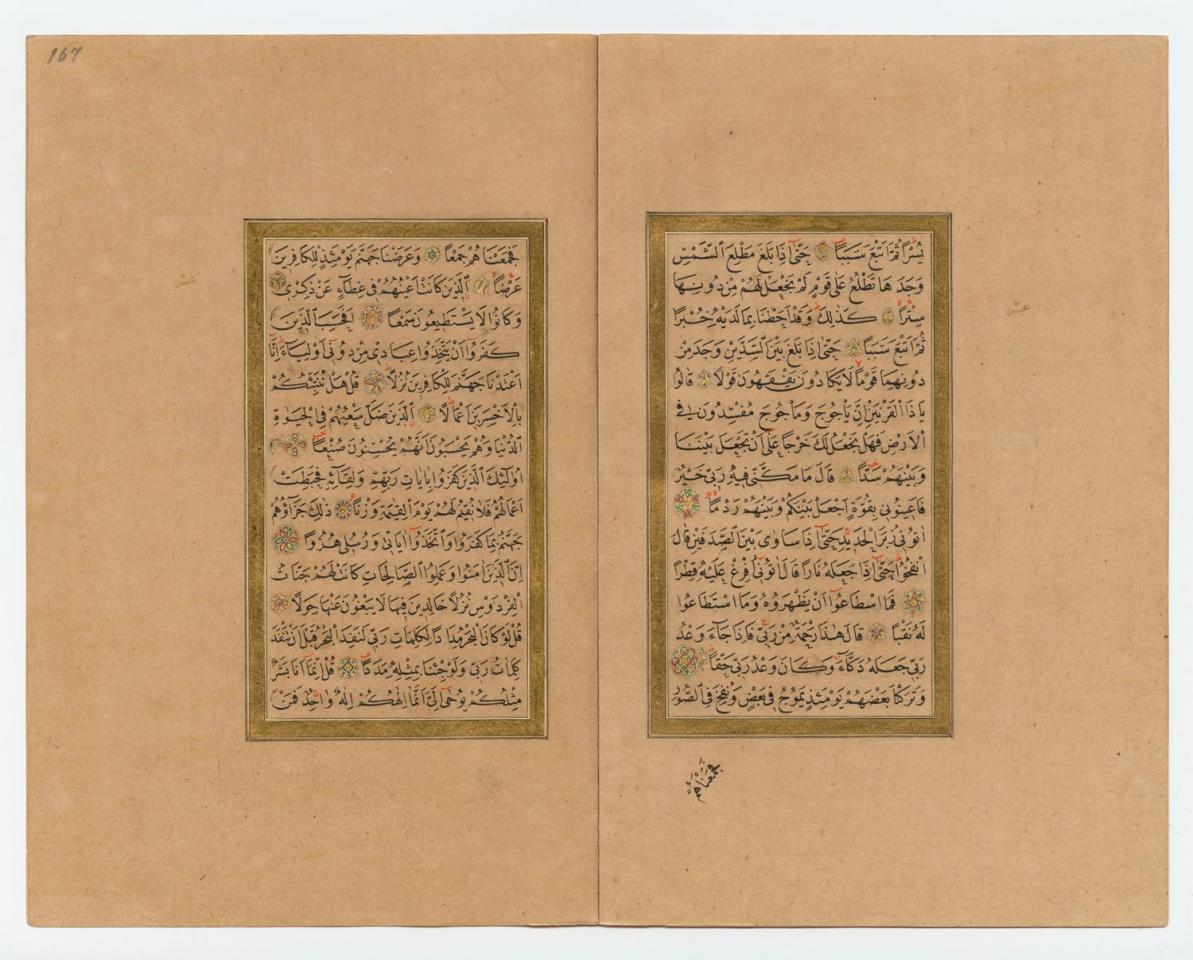 167
يُسْرًا ثُمَّ اَتْبَعَ سَبَبًا حَتّٰى اِذَا بَلَغَ مَطْلِعَ الشَّمْسِ
وَجَدَهَا تَطْلُعُ عَلٰى قَوْمٍ لَمْ نَجْعَلْ لَهُمْ مِنْ دُونِهَا
سِتْرًا كَذٰلِكَ وَقَدْ اَحَطْنَا بِمَا لَدَيْهِ خُبْرًا
ثُمَّ اَتْبَعَ سَبَبًا حَتّٰى اِذَا بَلَغَ بَيْنَ السَّدَّيْنِ وَجَدَ مِنْ
دُونِهِمَا قَوْمًا لَا يَكَادُونَ يَفْقَهُونَ قَوْلًا قَالُوا
يَا ذَا الْقَرْنَيْنِ اِنَّ يَاْجُوجَ وَمَاْجُوجَ مُفْسِدُونَ فِي
الْاَرْضِ فَهَلْ نَجْعَلُ لَكَ خَرْجًا عَلٰى اَنْ تَجْعَلَ بَيْنَنَا
وَبَيْنَهُمْ سَدًّا قَالَ مَا مَكَّنّٖي فٖيهِ رَبّٖي خَيْرٌ
فَاَعٖينُونٖي بِقُوَّةٍ اَجْعَلْ بَيْنَكُمْ وَبَيْنَهُمْ رَدْمًا
اٰتُونٖي زُبَرَ الْحَدٖيدِ حَتّٰى اِذَا سَاوٰى بَيْنَ الصَّدَفَيْنِ قَالَ
انْفُخُوا حَتّٰى اِذَا جَعَلَهُ نَارًا قَالَ اٰتُونٖي اُفْرِغْ عَلَيْهِ قِطْرًا
فَمَا اسْطَاعُوا اَنْ يَظْهَرُوهُ وَمَا اسْتَطَاعُوا
لَهُ نَقْبًا قَالَ هٰذَا رَحْمَةٌ مِنْ رَبّٖي فَاِذَا جَاءَ وَعْدُ
رَبّٖي جَعَلَهُ دَكَّاءَ وَكَانَ وَعْدُ رَبّٖي حَقًّا
وَتَرَكْنَا بَعْضَهُمْ يَوْمَئِذٍ يَمُوجُ فٖي بَعْضٍ وَنُفِخَ فِي الصُّورِ
فَجَمَعْنَاهُمْ
فَجَمَعْنَاهُمْ جَمْعًا وَعَرَضْنَا جَهَنَّمَ يَوْمَئِذٍ لِلْكَافِرٖينَ
عَرْضًا اَلَّذٖينَ كَانَتْ اَعْيُنُهُمْ فٖي غِطَاءٍ عَنْ ذِكْرٖي
وَكَانُوا لَا يَسْتَطٖيعُونَ سَمْعًا اَفَحَسِبَ الَّذٖينَ
كَفَرُوا اَنْ يَتَّخِذُوا عِبَادٖي مِنْ دُونٖي اَوْلِيَاءَ اِنَّا
اَعْتَدْنَا جَهَنَّمَ لِلْكَافِرٖينَ نُزُلًا قُلْ هَلْ نُنَبِّئُكُمْ
بِالْاَخْسَرٖينَ اَعْمَالًا اَلَّذٖينَ ضَلَّ سَعْيُهُمْ فِي الْحَيٰوةِ
الدُّنْيَا وَهُمْ يَحْسَبُونَ اَنَّهُمْ يُحْسِنُونَ صُنْعًا
اُولٰئِكَ الَّذٖينَ كَفَرُوا بِاٰيَاتِ رَبِّهِمْ وَلِقَائِهٖ فَحَبِطَتْ
اَعْمَالُهُمْ فَلَا نُقٖيمُ لَهُمْ يَوْمَ الْقِيٰمَةِ وَزْنًا ذٰلِكَ جَزَاؤُهُمْ
جَهَنَّمُ بِمَا كَفَرُوا وَاتَّخَذُوا اٰيَاتٖي وَرُسُلٖي هُزُوًا
اِنَّ الَّذٖينَ اٰمَنُوا وَعَمِلُوا الصَّالِحَاتِ كَانَتْ لَهُمْ جَنَّاتُ
الْفِرْدَوْسِ نُزُلًا خَالِدٖينَ فٖيهَا لَا يَبْغُونَ عَنْهَا حِوَلًا
قُلْ لَوْ كَانَ الْبَحْرُ مِدَادًا لِكَلِمَاتِ رَبّٖي لَنَفِدَ الْبَحْرُ قَبْلَ اَنْ تَنْفَدَ
كَلِمَاتُ رَبّٖي وَلَوْ جِئْنَا بِمِثْلِهٖ مَدَدًا قُلْ اِنَّمَا اَنَا بَشَرٌ
مِثْلُكُمْ يُوحٰى اِلَيَّ اَنَّمَا اِلٰهُكُمْ اِلٰهٌ وَاحِدٌ فَمَنْ